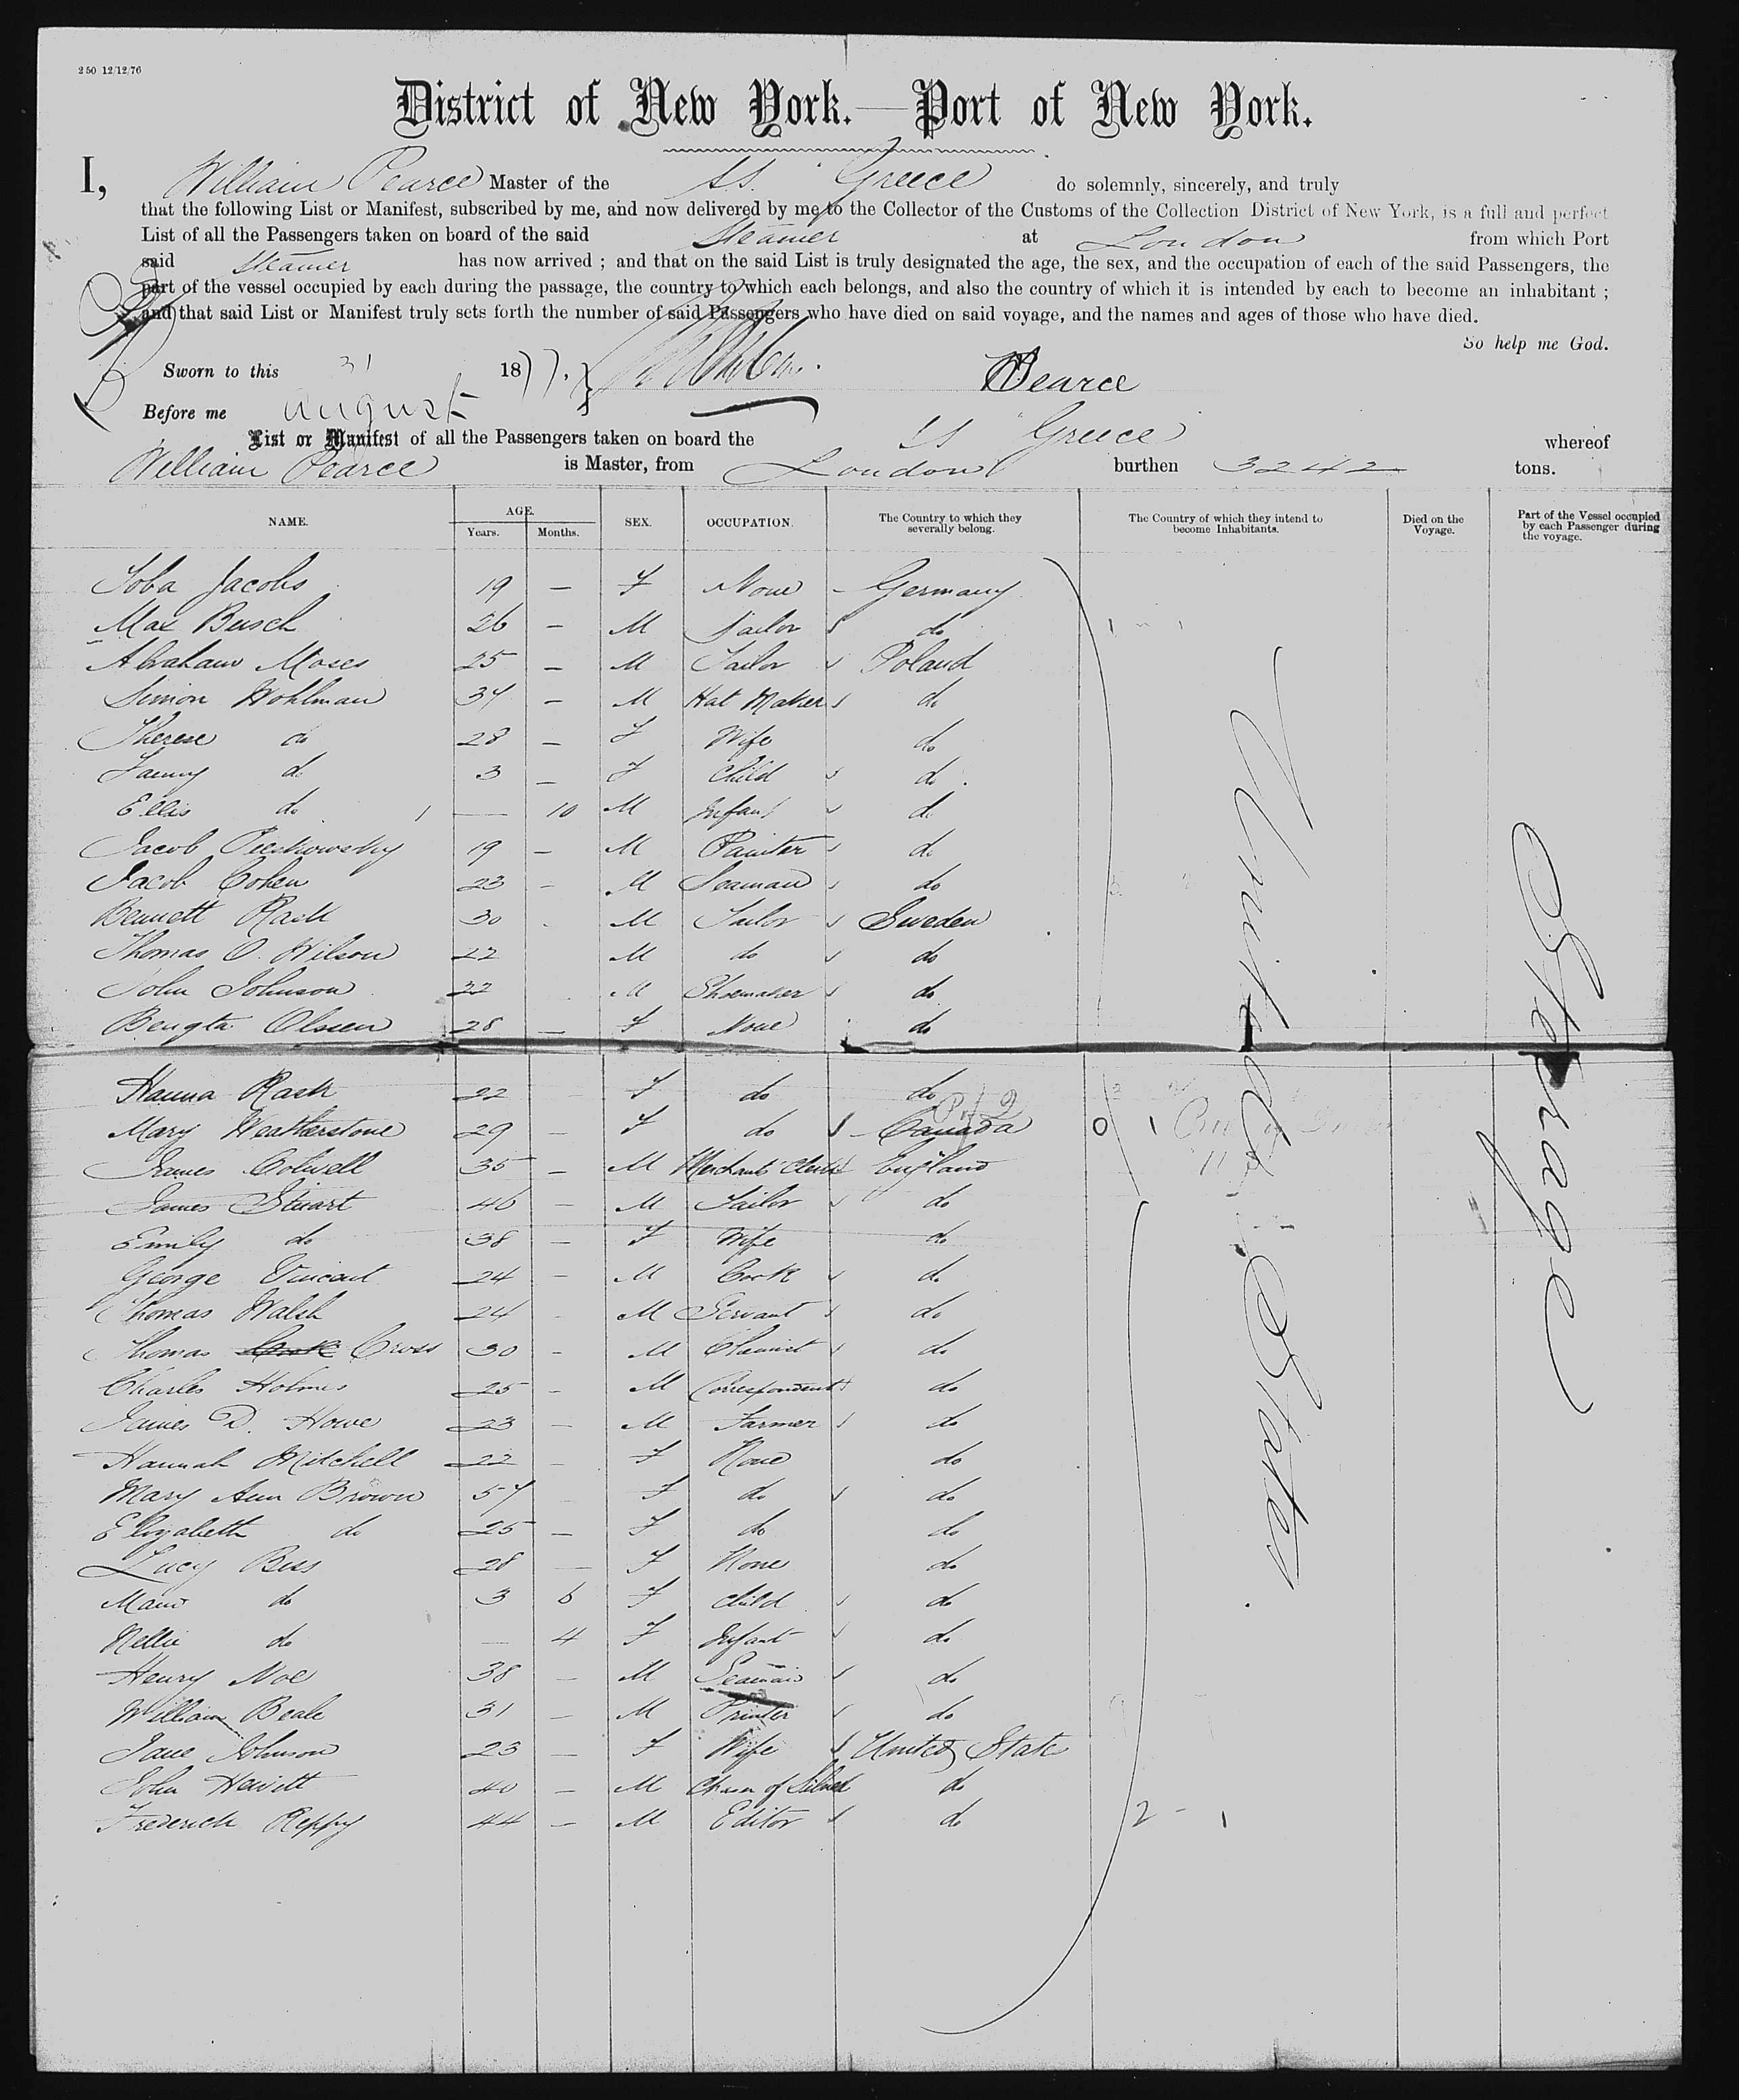 250 12/12/76
District of New York.—Port of New York.
I, William Pearce Master of the SS. Greece do solemnly, sincerely, and truly
that the following List or Manifest, subscribed by me, and now delivered by me to the Collector of the Customs of the Collection District of New York, is a full and perfect
List of all the Passengers taken on board of the said Steamer at London from which Port
said Steamer has now arrived ; and that on the said List is truly designated the age, the sex, and the occupation of each of the said Passengers, the
part of the vessel occupied by each during the passage, the country to which each belongs, and also the country of which it is intended by each to become an inhabitant ;
and that said List or Manifest truly sets forth the number of said Passengers who have died on said voyage, and the names and ages of those who have died.
So help me God.
Sworn to this 31 1877. Pearce
Before me August
List or Manifest of all the Passengers taken on board the SS Greece whereof
William Pearce is Master, from London burthen 3242 tons.
NAME. AGE. Years. Months. SEX. OCCUPATION. The Country to which they severally belong. The Country of which they intend to become Inhabitants. Died on the Voyage. Part of the Vessel occupied by each Passenger during the voyage.
Jacobs 19 — F None Germany
Max Busch 26 — M Sailor do
Abraham Moses 25 — M Tailor Poland
Simon Wohlman 34 — M Hat Maker do
Therese do 28 — F Wife do
Fanny do 3 — F Child do
Ellis do — 10 M Infant do
Jacob 19 — M Painter do
Jacob Cohen 23 - M Seaman do
Bennett Rask 30 - M Tailor Sweden
Thomas O. Wilson 22 M do do
John Johnson 32 M Shoemaker do
Bengta Olssen 28 — F None do
Hanna Rask 22 F do do
Mary Weatherstone 29 — F do Canada
James Colwell 35 — M Merchants Clerk England
James Stuart 46 — M Tailor do
Emily do 38 — F Wife do
George Vincent 24 — M Cook do
Thomas Walsh 24 - M Servant do
Thomas Cook Cross 30 - M Chemist do
Charles Holmes 25 - M Correspondent do
James D. Howe 23 — M Farmer do
Hannah Mitchell 22 — F None do
Mary Ann Brown 57 F do do
Elizabeth do 25 — F do do
Lucy Biss 28 — F None do
Maud do 3 6 F Child do
Nellie do — 4 F Infant do
Henry Noe 38 — M Seaman do
William Beale 31 — M Printer do
Jane Johnson 23 — F Wife United State
John Hewitt 40 — M Chaser of Silver do
Frederick Reppy 44 — M Editor do
2 - 1
United States
Steerage